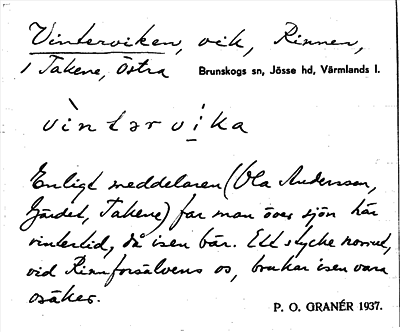 Vinterviken, vik, Rinnen,
i Takene, Östra Brunskogs sn, Jösse hd, Värmlands l.
vìntərvi̠ka
Enligt meddelaren (Ola Andersson,
Gärdet, Takene) far man över sjön här
vintertid, då isen bär. Ett stycke norrut,
vid Rinnforsälvens os, brukar isen vara
osäker.
P. O. GRANÉR 1937.